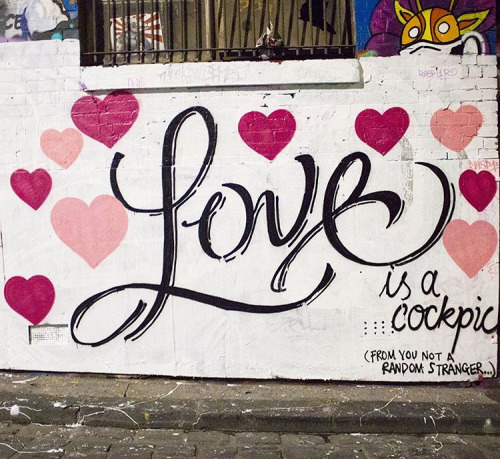 Love
is a
cockpic
(FROM YOU NOT A
RANDOM STRANGER...)